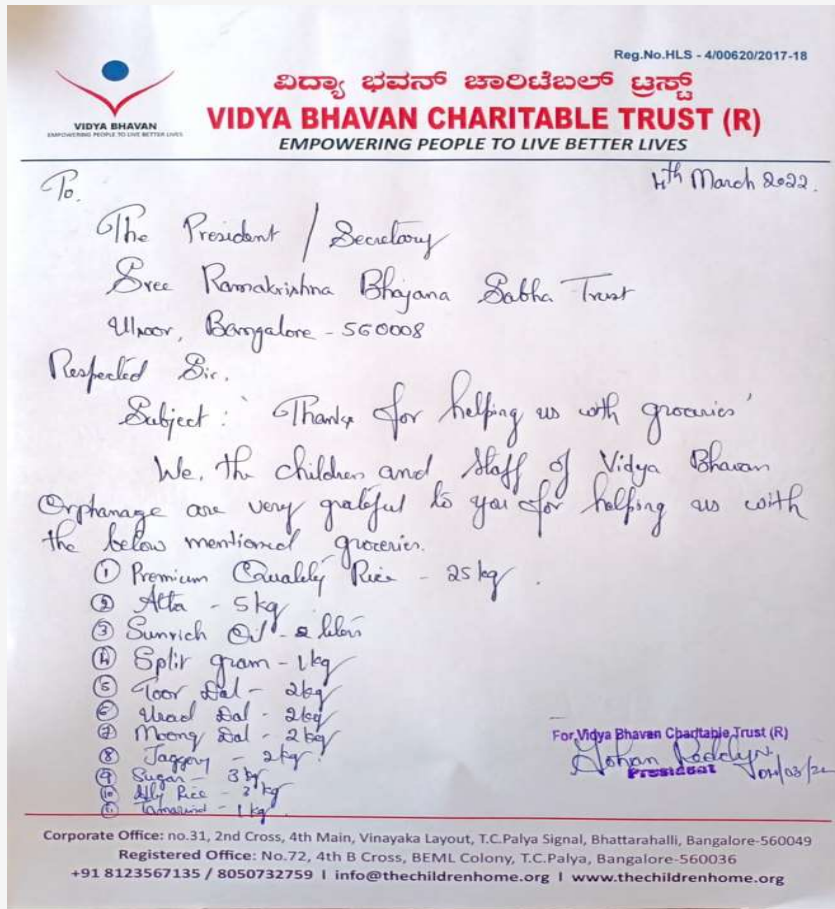 Reg.No.HLS - 4/00620/2017-18
ವಿದ್ಯಾ ಭವನ್ ಚಾರಿಟೆಬಲ್ ಟ್ರಸ್ಟ್
VIDYA BHAVAN CHARITABLE TRUST (R)
EMPOWERING PEOPLE TO LIVE BETTER LIVES
VIDYA BHAVAN
EMPOWERING PEOPLE TO LIVE BETTER LIVES
4th March 2022.
To.
The President / Secretary
Sree Ramakrishna Bhajana Sabha Trust
Ulsoor, Bangalore - 560008
Respected Sir,
Subject: 'Thanks for helping us with groceries'
We, the children and staff of Vidya Bhavan
Orphanage are very grateful to you for helping us with
the below mentioned groceries.
① Premium Quality Rice - 25 kg.
② Atta - 5 kg
③ Sunrich Oil - 2 liters
④ Split gram - 1 kg
⑤ Toor Dal - 2 kg
⑥ Urad Dal - 2 kg
⑦ Moong Dal - 2 kg
⑧ Jaggery - 2 kg
⑨ Sugar - 3 kg
⑩ Idly Rice - kg
⑪ Tamarind - 1 kg
For Vidya Bhavan Charitable Trust (R)
President
Corporate Office: no.31, 2nd Cross, 4th Main, Vinayaka Layout, T.C.Palya Signal, Bhattarahalli, Bangalore-560049
Registered Office: No.72, 4th B Cross, BEML Colony, T.C.Palya, Bangalore-560036
+91 8123567135 / 8050732759 I info@thechildrenhome.org I www.thechildrenhome.org